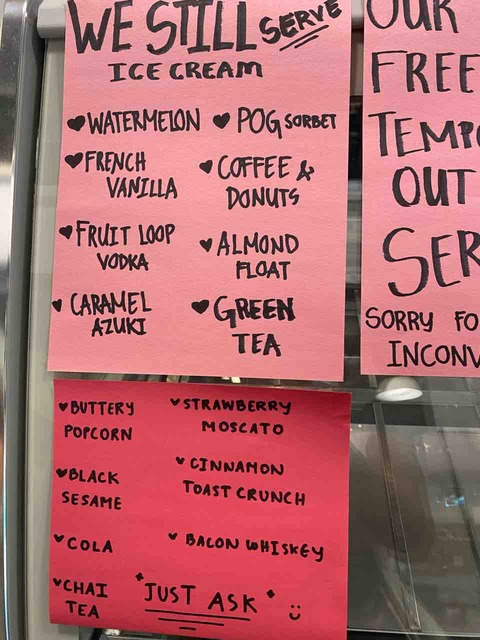 WE STILL SERVE
ICE CREAM
WATERMELON
POG SORBET
FRENCH
VANILLA
COFFEE &
DONUTS
FRUIT LOOP
VODKA
ALMOND
FLOAT
CARAMEL
AZUKI
GREEN
TEA
BUTTERY
POPCORN
STRAWBERRY
MOSCATO
BLACK
SESAME
CINNAMON
TOAST CRUNCH
COLA
BACON WHISKEY
CHAI
TEA
"JUST ASK"
OUR
FREE
TEMP
OUT
SER
SORRY FO
INCONV